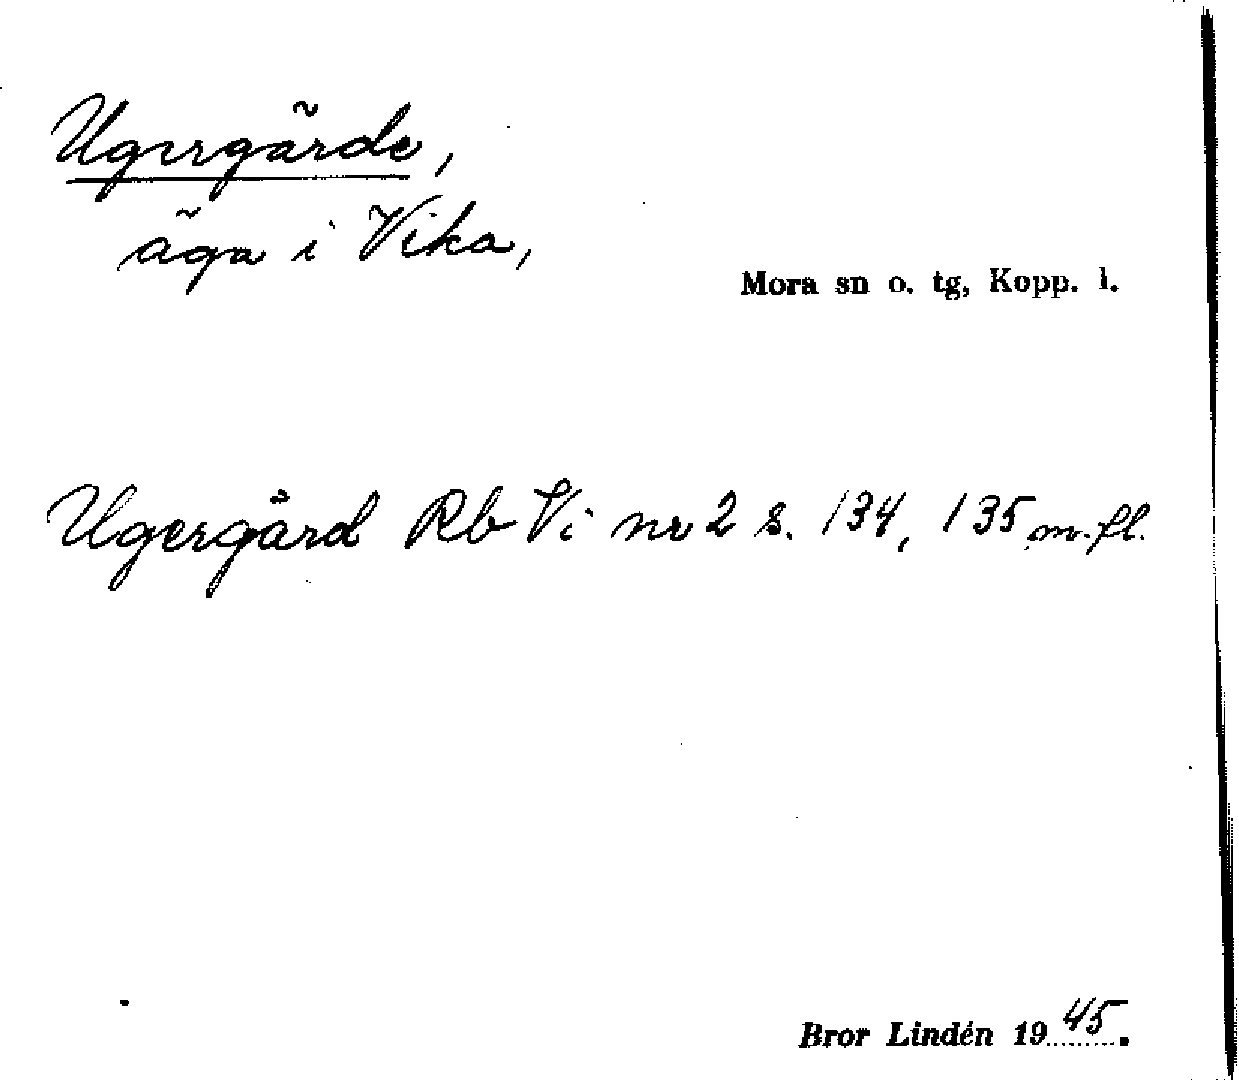 Ugergärde,
äga i Vika,
Mora sn o. tg, Kopp. l.
Ugergård Rb Vi nr 2 s. 134, 135 m. fl.
Bror Lindén 1945.